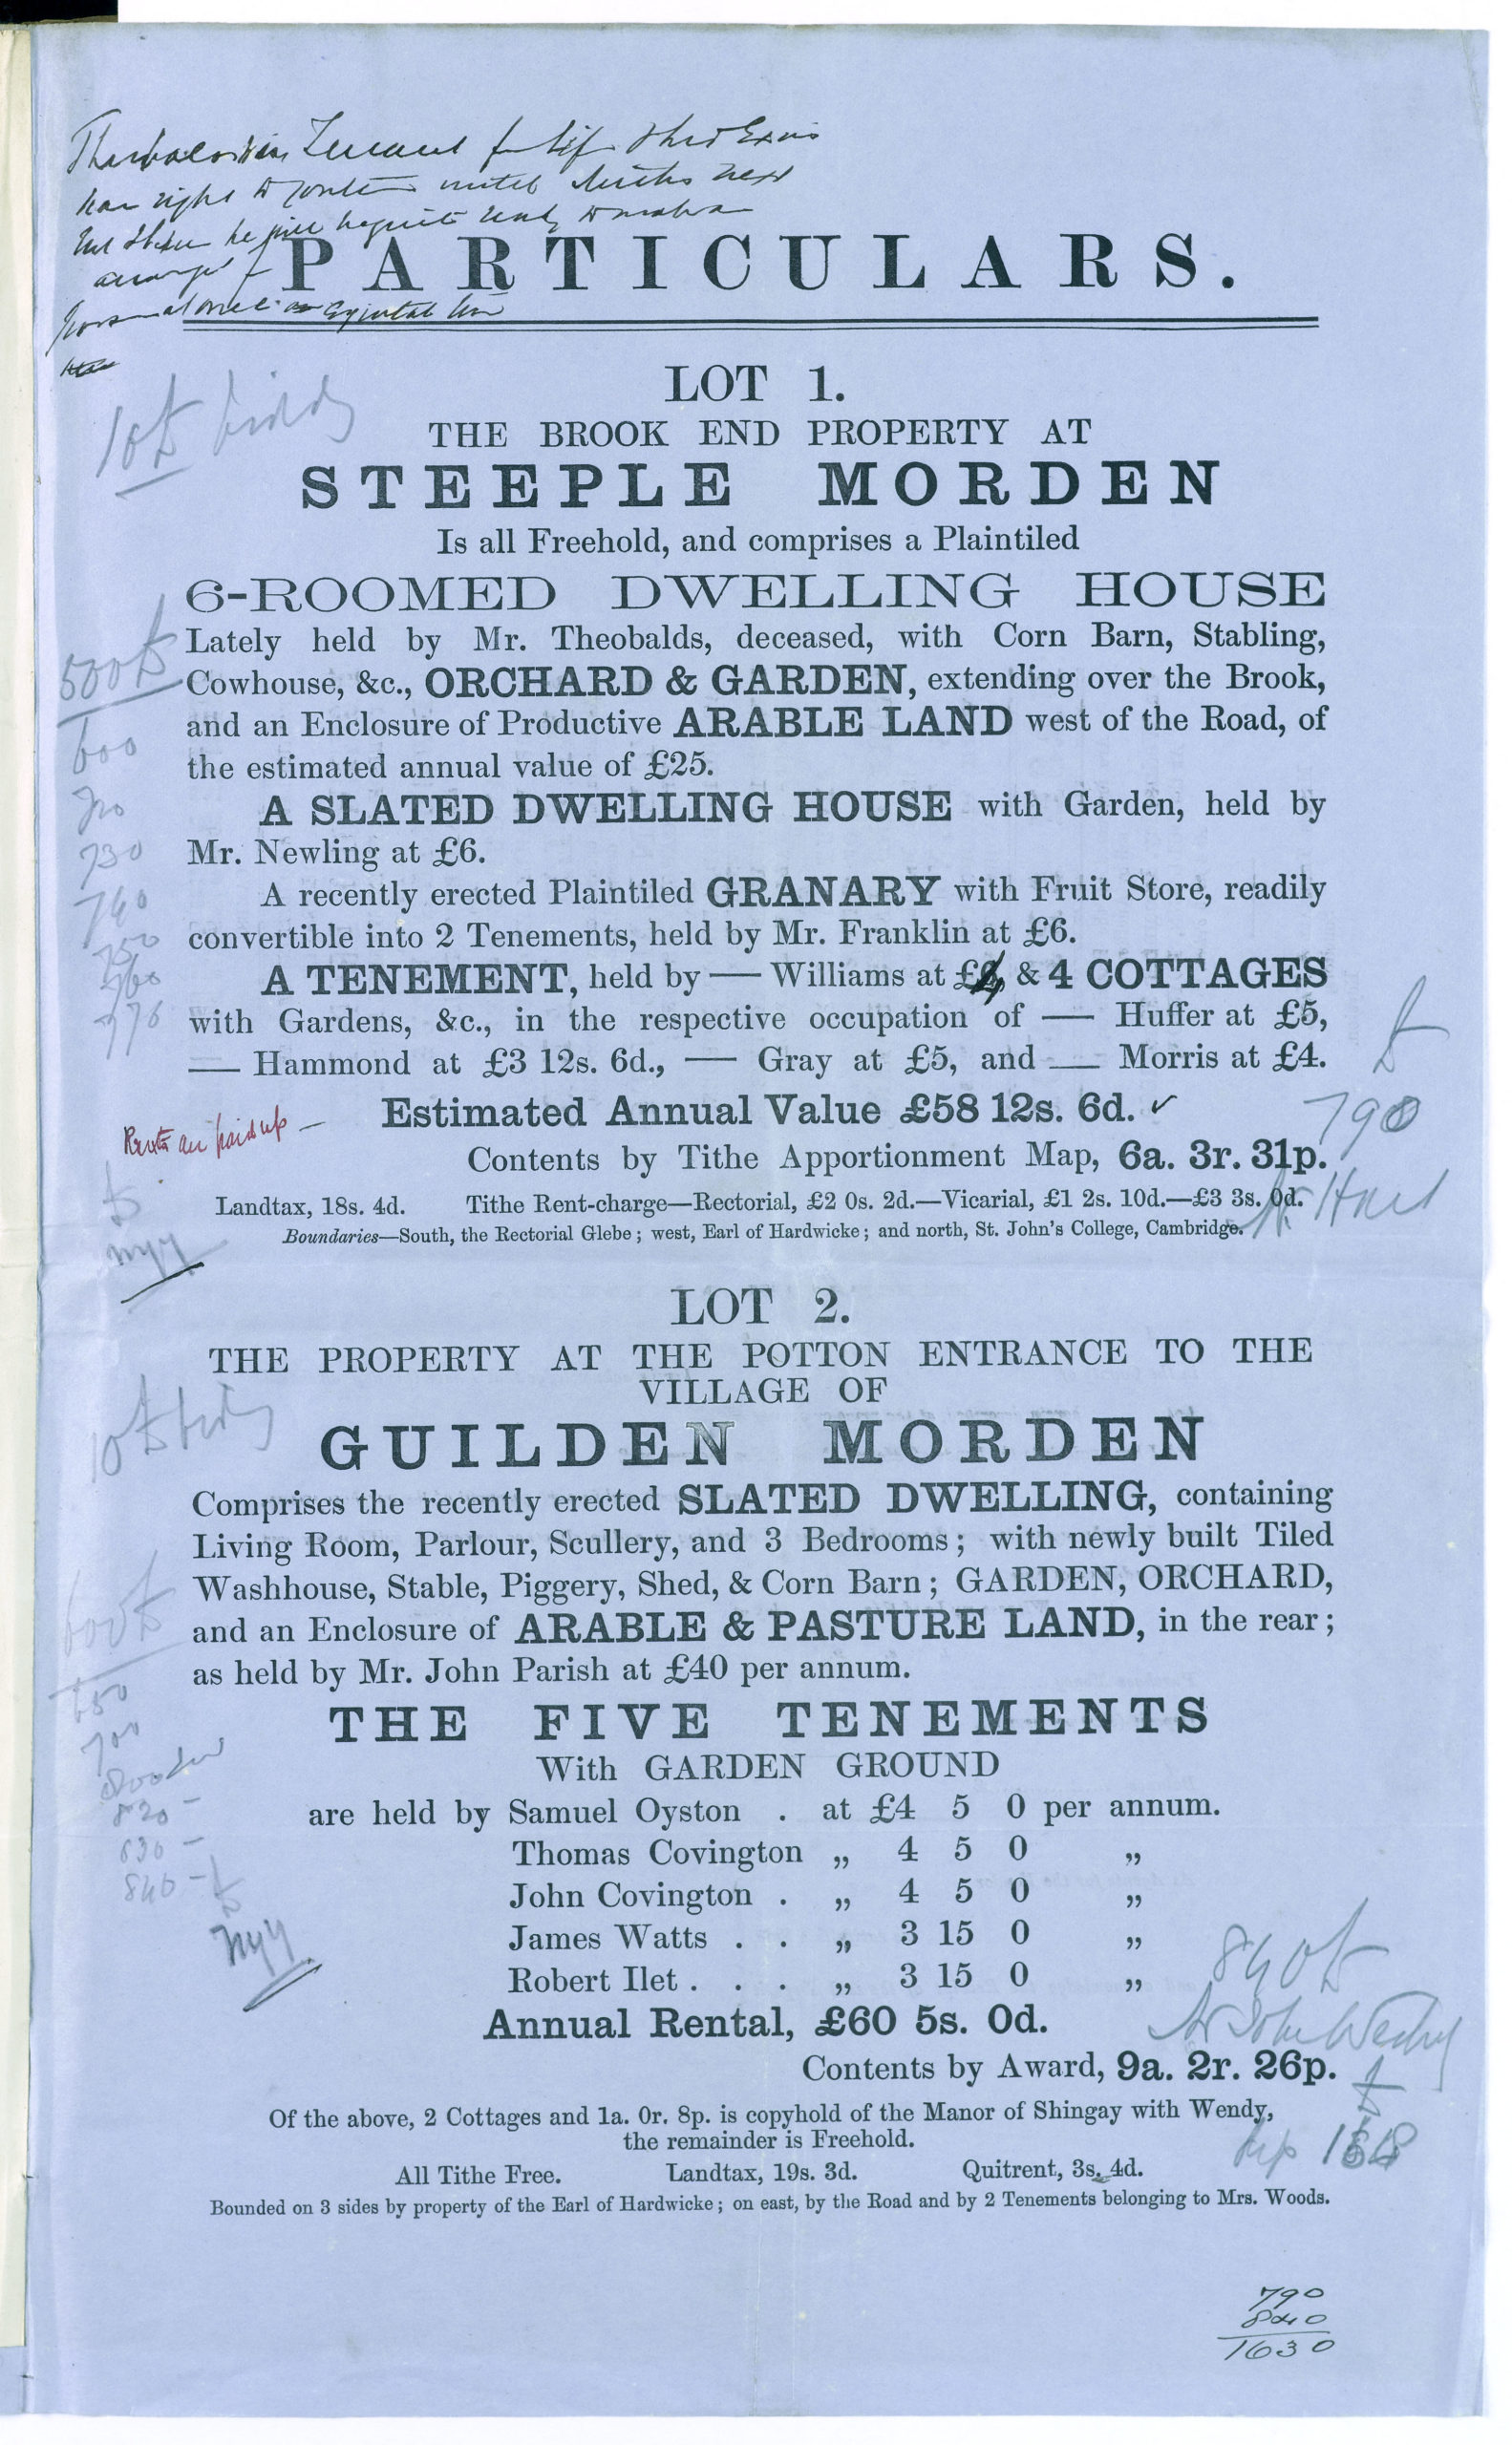 PARTICULARS.
LOT 1.
THE BROOK END PROPERTY AT
STEEPLE MORDEN
Is all Freehold, and comprises a Plaintiled
6-ROOMED DWELLING HOUSE
Lately held by Mr. Theobalds, deceased, with Corn Barn, Stabling,
500£
Cowhouse, &c., ORCHARD & GARDEN, extending over the Brook,
600
and an Enclosure of Productive ARABLE LAND west of the Road, of
the estimated annual value of £25.
A SLATED DWELLING HOUSE with Garden, held by
730
Mr. Newling at £6.
740
A recently erected Plaintiled GRANARY with Fruit Store, readily
750
convertible into 2 Tenements, held by Mr. Franklin at £6.
760
A TENEMENT, held by — Williams at £4 & 4 COTTAGES
with Gardens, &c., in the respective occupation of — Huffer at £5,
— Hammond at £3 12s. 6d., — Gray at £5, and — Morris at £4.
Estimated Annual Value £58 12s. 6d.
£
790
Rents are paid up —
Contents by Tithe Apportionment Map, 6a. 3r. 31p.
Landtax, 18s. 4d. Tithe Rent-charge—Rectorial, £2 0s. 2d.—Vicarial, £1 2s. 10d.—£3 3s. 0d.
Boundaries—South, the Rectorial Glebe; west, Earl of Hardwicke; and north, St. John's College, Cambridge.
LOT 2.
THE PROPERTY AT THE POTTON ENTRANCE TO THE
VILLAGE OF
GUILDEN MORDEN
Comprises the recently erected SLATED DWELLING, containing
Living Room, Parlour, Scullery, and 3 Bedrooms; with newly built Tiled
Washhouse, Stable, Piggery, Shed, & Corn Barn; GARDEN, ORCHARD,
600£
and an Enclosure of ARABLE & PASTURE LAND, in the rear;
as held by Mr. John Parish at £40 per annum.
650
THE FIVE TENEMENTS
700
With GARDEN GROUND
are held by Samuel Oyston . at £4 5 0 per annum.
820 –
Thomas Covington „ 4 5 0 „
830 –
John Covington . „ 4 5 0 „
840 –
James Watts . . „ 3 15 0 „
Robert Ilet . . . „ 3 15 0 „
840£
Annual Rental, £60 5s. 0d.
Contents by Award, 9a. 2r. 26p.
Of the above, 2 Cottages and 1a. 0r. 8p. is copyhold of the Manor of Shingay with Wendy,
the remainder is Freehold.
All Tithe Free. Landtax, 19s. 3d. Quitrent, 3s. 4d.
Bounded on 3 sides by property of the Earl of Hardwicke; on east, by the Road and by 2 Tenements belonging to Mrs. Woods.
790
840
1630